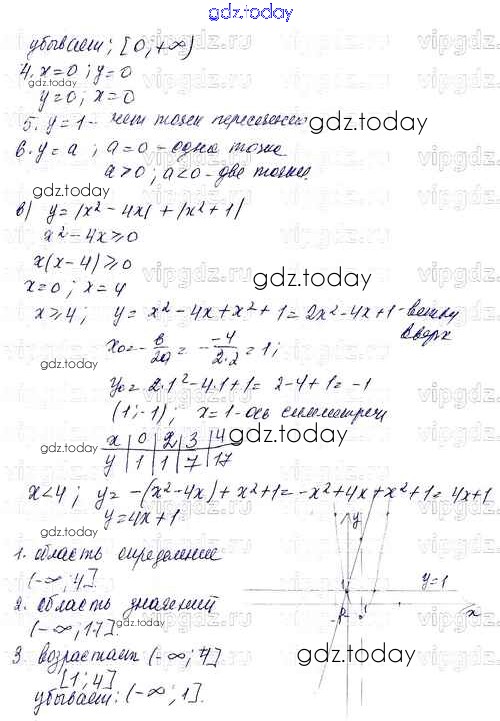 gdz.today
убывает; [0; +∞)
4. x=0; y=0
y=0; x=0
5. y=1 - нет точек пересечения
gdz.today
6. y=a; a=0 - одна точка
a>0; a<0 - две точки.
gdz.today
в) y=|x²-4x|+|x²+1|
x²-4x≥0
x(x-4)≥0
gdz.today
x=0; x=4
x≥4; y=x²-4x+x²+1=2x²-4x+1 - ветки вверх
x₀=-в/2a=--4/2·2=1;
gdz.today
y₀=2·1²-4·1+1=2-4+1=-1
(1;-1); x=1 - ось симметрии
x | 0 | 2 | 3 | 4
gdz.today
y | 1 | 1 | 7 | 17
gdz.today
x<4; y=-(x²-4x)+x²+1=-x²+4x+x²+1=4x+1
y=4x+1
gdz.today
y
1. область определение
(-∞; 4]
y=1
gdz.today
x
2. область значений
(-∞; 17].
gdz.today
3. возрастает (-∞; 4]
gdz.today
[1; 4]
убывает: (-∞; 1].
gdz.today